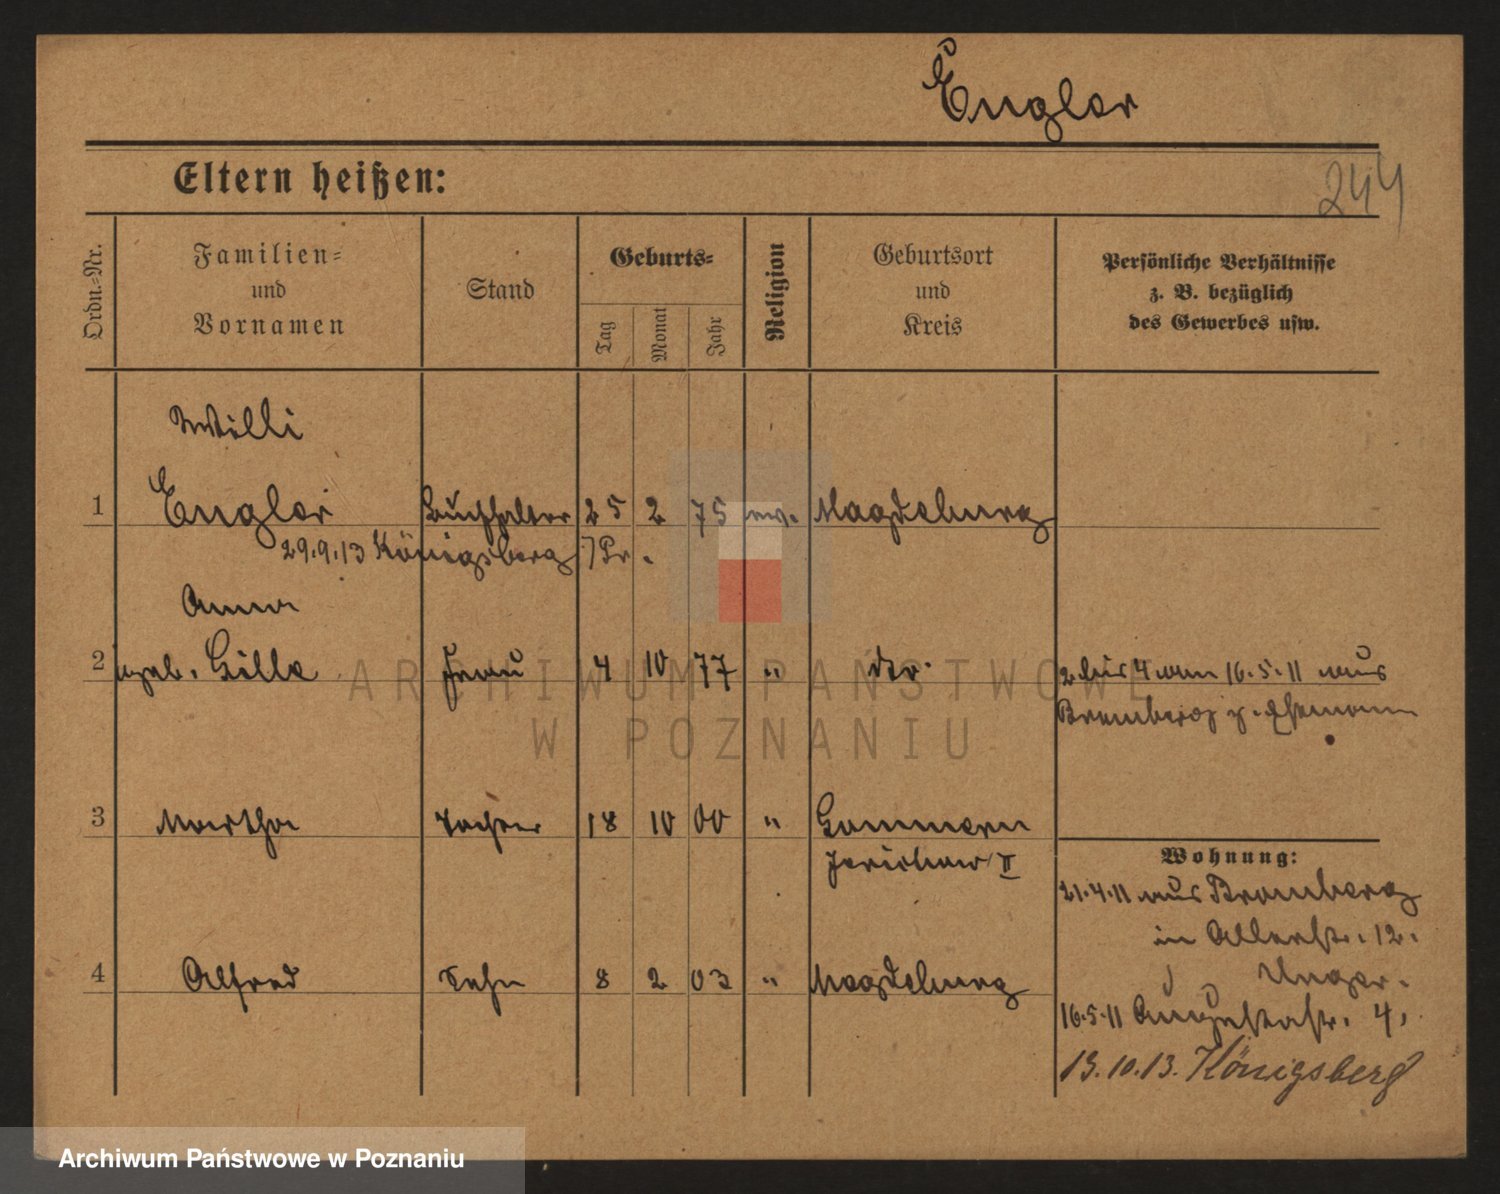 Engler
244
Eltern heißen:
Ordn.-Nr.
Familien-
und
Vornamen
Stand
Geburts-
Tag
Monat
Jahr
Religion
Geburtsort
und
Kreis
Persönliche Verhältnisse
z. B. bezüglich
des Gewerbes usw.
Willi
1 Engler Buchhalter 25 2 75 ev. Magdeburg
29.9.13 Königsberg /Pr.
Anna
2 geb. Gille Frau 4 10 77 " dto. 2 bis 4 am 16.5.11 aus
Bromberg z. Ehemann
3 Martha Tochter 18 10 00 " Gommern
Jerichow II
Wohnung:
21.4.11 aus Bromberg
in Allerstr. 12.
4 Alfred Sohn 8 2 03 " Magdeburg
Unger.
16.5.11 Augustastr. 4.
13.10.13. Königsberg
ARCHIWUM PAŃSTWOWE
W POZNANIU
Archiwum Państwowe w Poznaniu